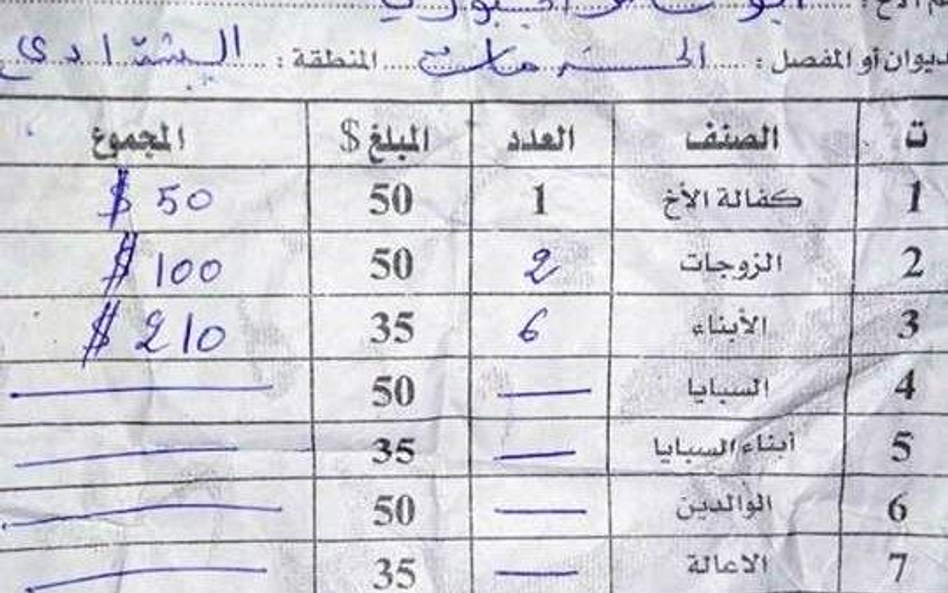 ديوان أو المفصل : ..... المنطقة :
ت الصنف العدد المبلغ $ المجموع
1 كفالة الأخ 1 50 $ 50
2 الزوجات 2 50 $ 100
3 الأبناء 6 35 $ 210
4 السبايا — 50 —
5 أبناء السبايا — 35 —
6 الوالدين — 50 —
7 الاعالة — 35 —